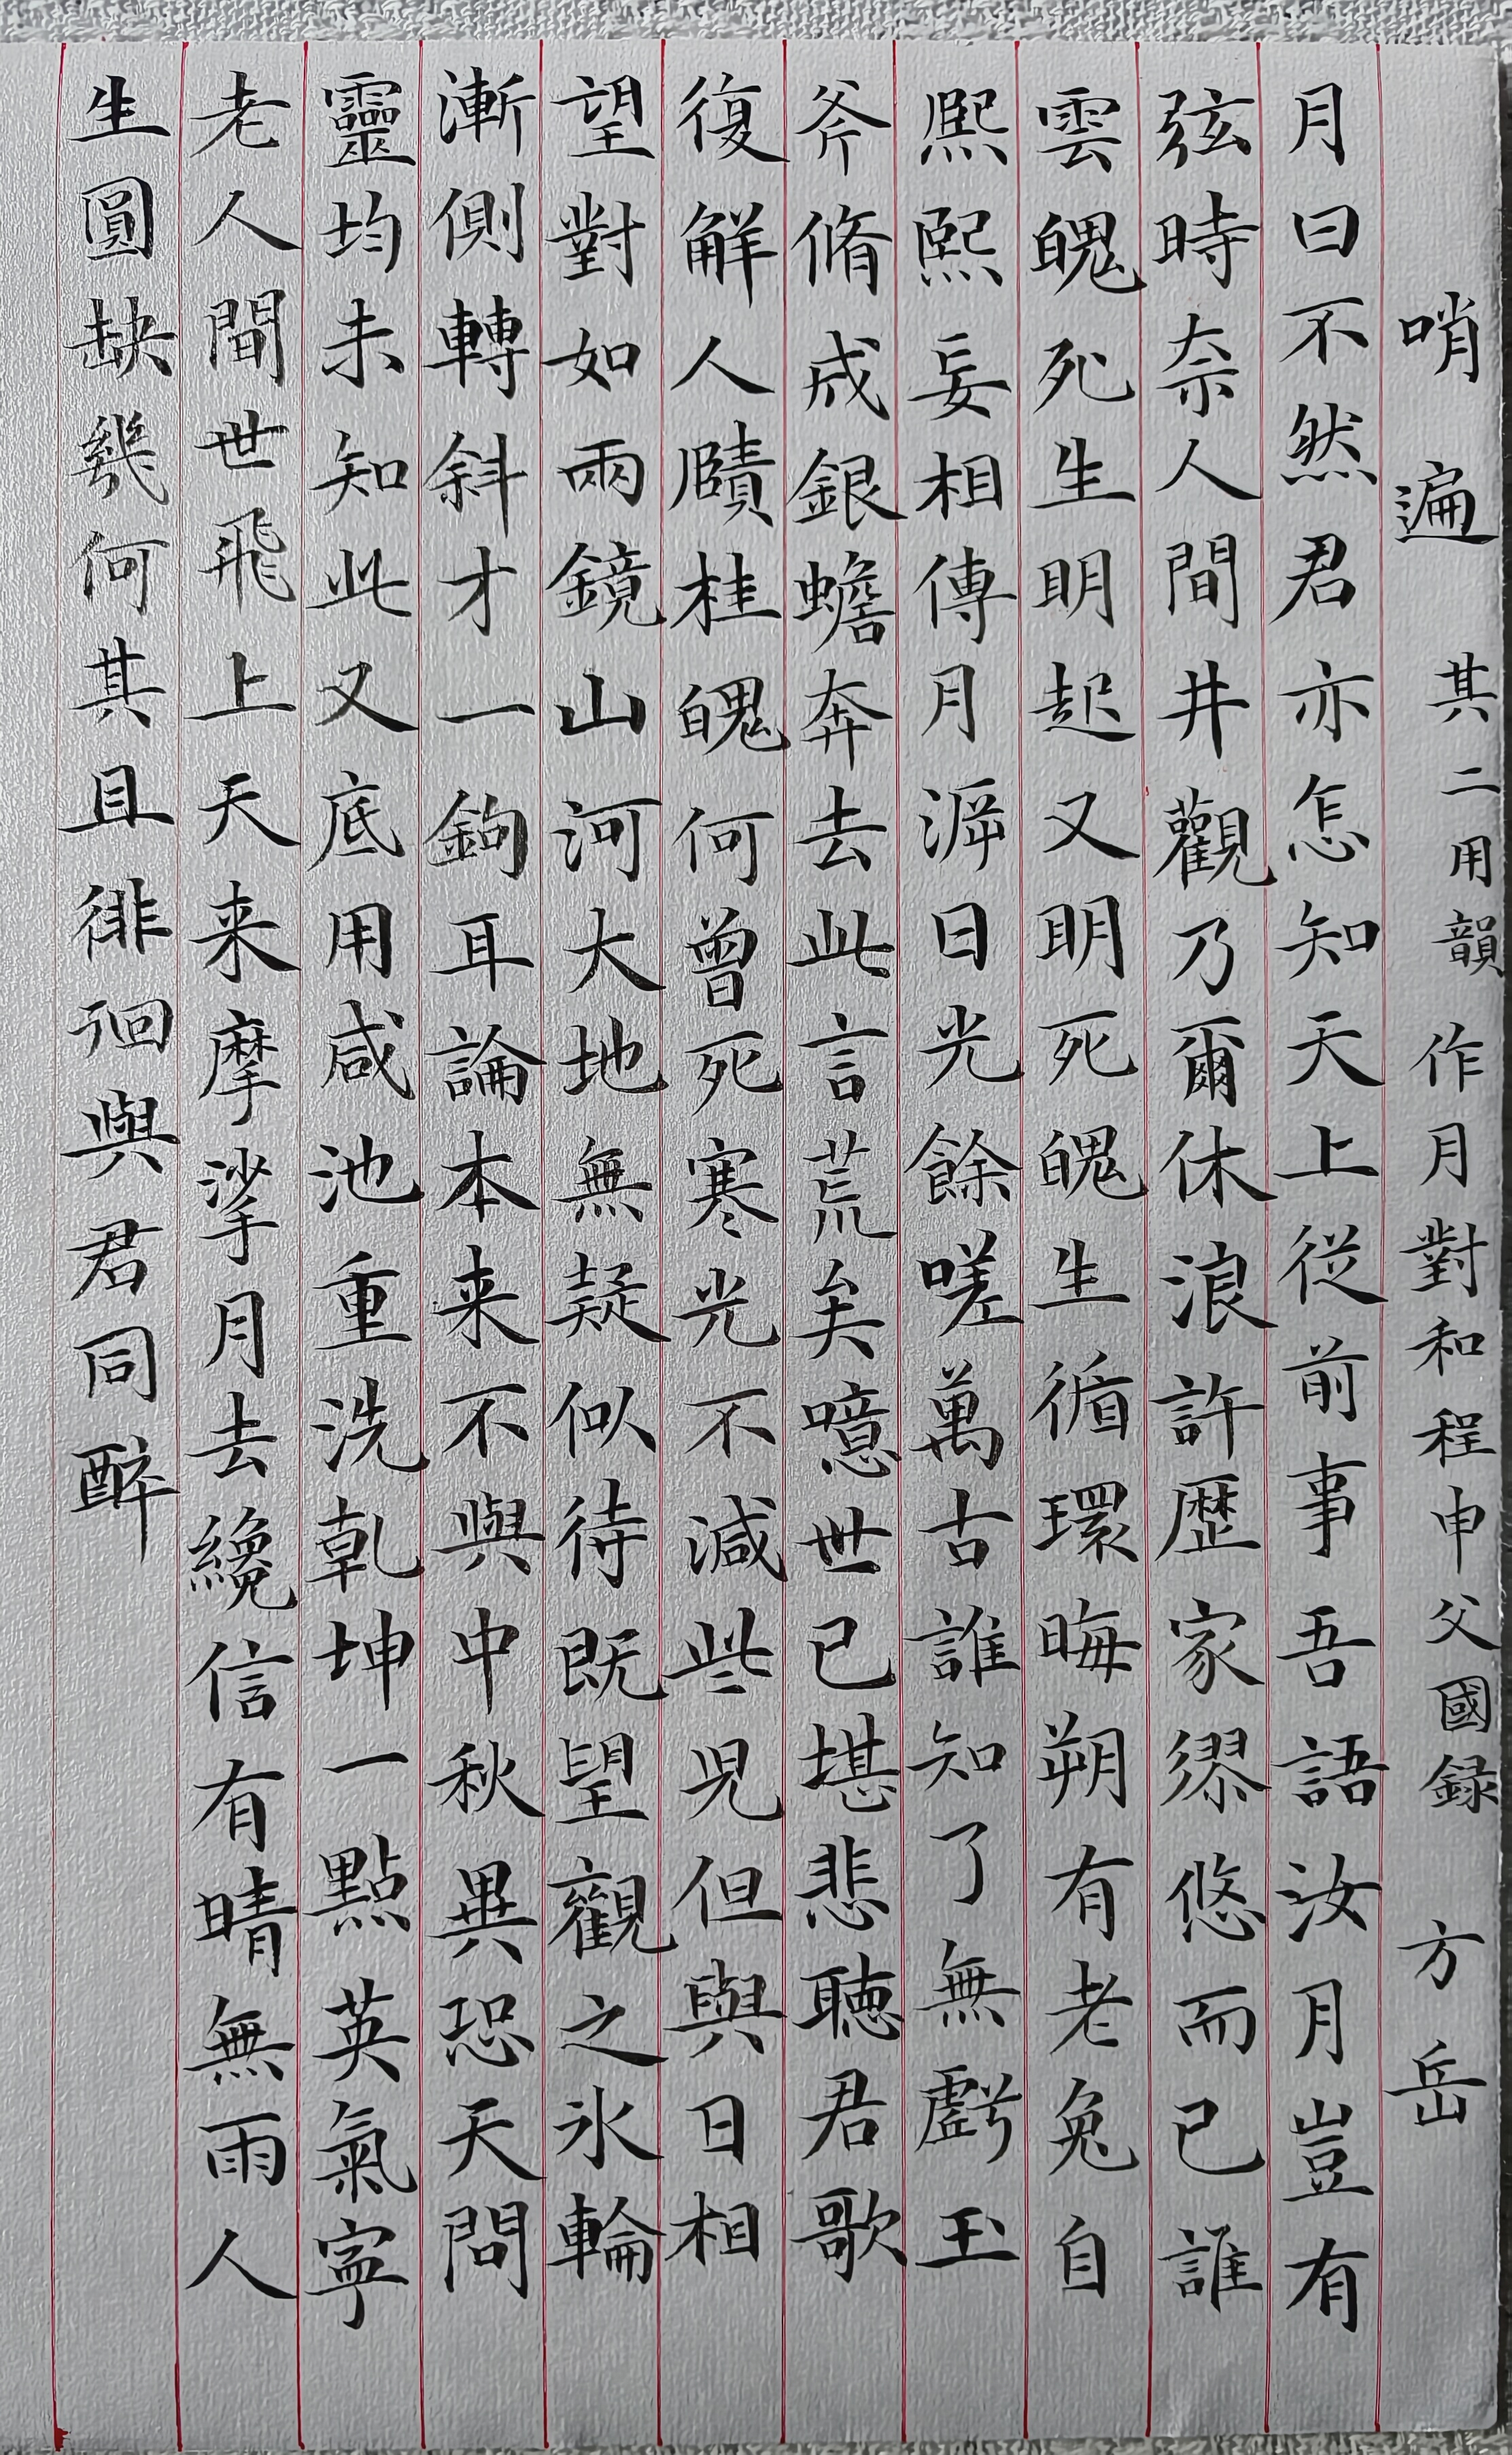 哨遍 其二用韻 作月對和程申父國録 方岳
月曰不然君亦怎知天上從前事吾語汝月豈有
弦時奈人間井觀乃爾休浪許歷家繆悠而已誰
雲魄死生明起又明死魄生循環晦朔有老兔自
熙熙妄相傳月溽日光餘嗟萬古誰知了無虧玉
斧脩成銀蟾奔去此言荒矣噫世已堪悲聽君歌
復解人頤桂魄何曾死寒光不減些兒但與日相
望對如兩鏡山河大地無疑似待既望觀之冰輪
漸側轉斜才一鉤耳論本来不與中秋異恐天問
靈均未知此又底用咸池重洗乾坤一點英氣寧
老人間世飛上天来摩挲月去纔信有晴無雨人
生圓缺幾何其且徘徊與君同醉